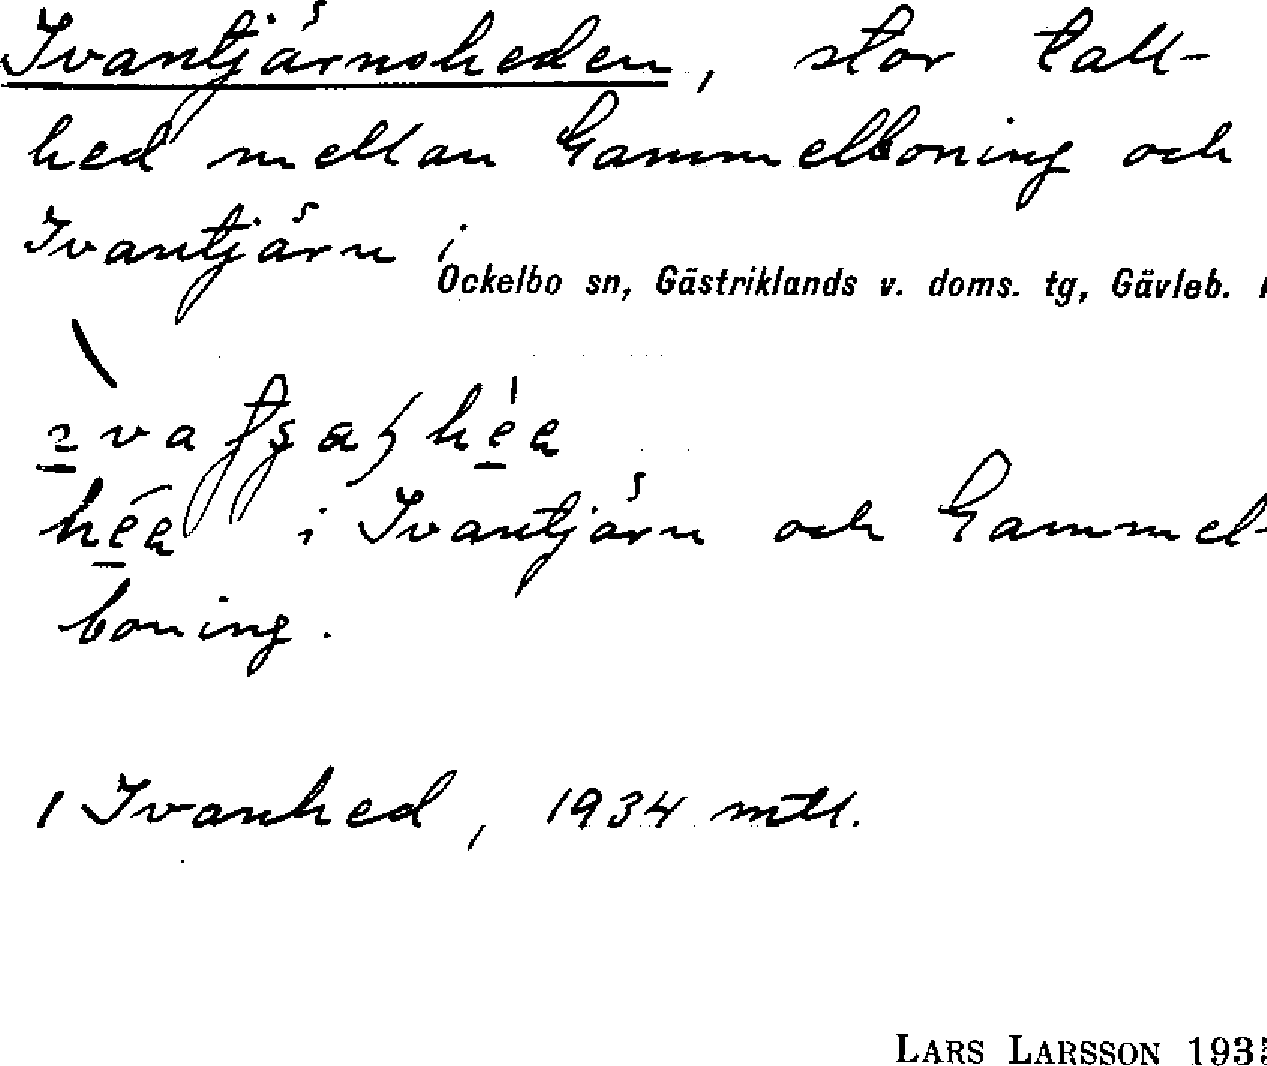 Ivantjärnsheden, stor tall-
hed mellan Gammelboning och
Ivantjärn i
Ockelbo sn, Gästriklands v. doms. tg, Gävleb.
i Ivantjärn och Gammel-
boning.
1 Ivanhed, 1934 mtl.
LARS LARSSON